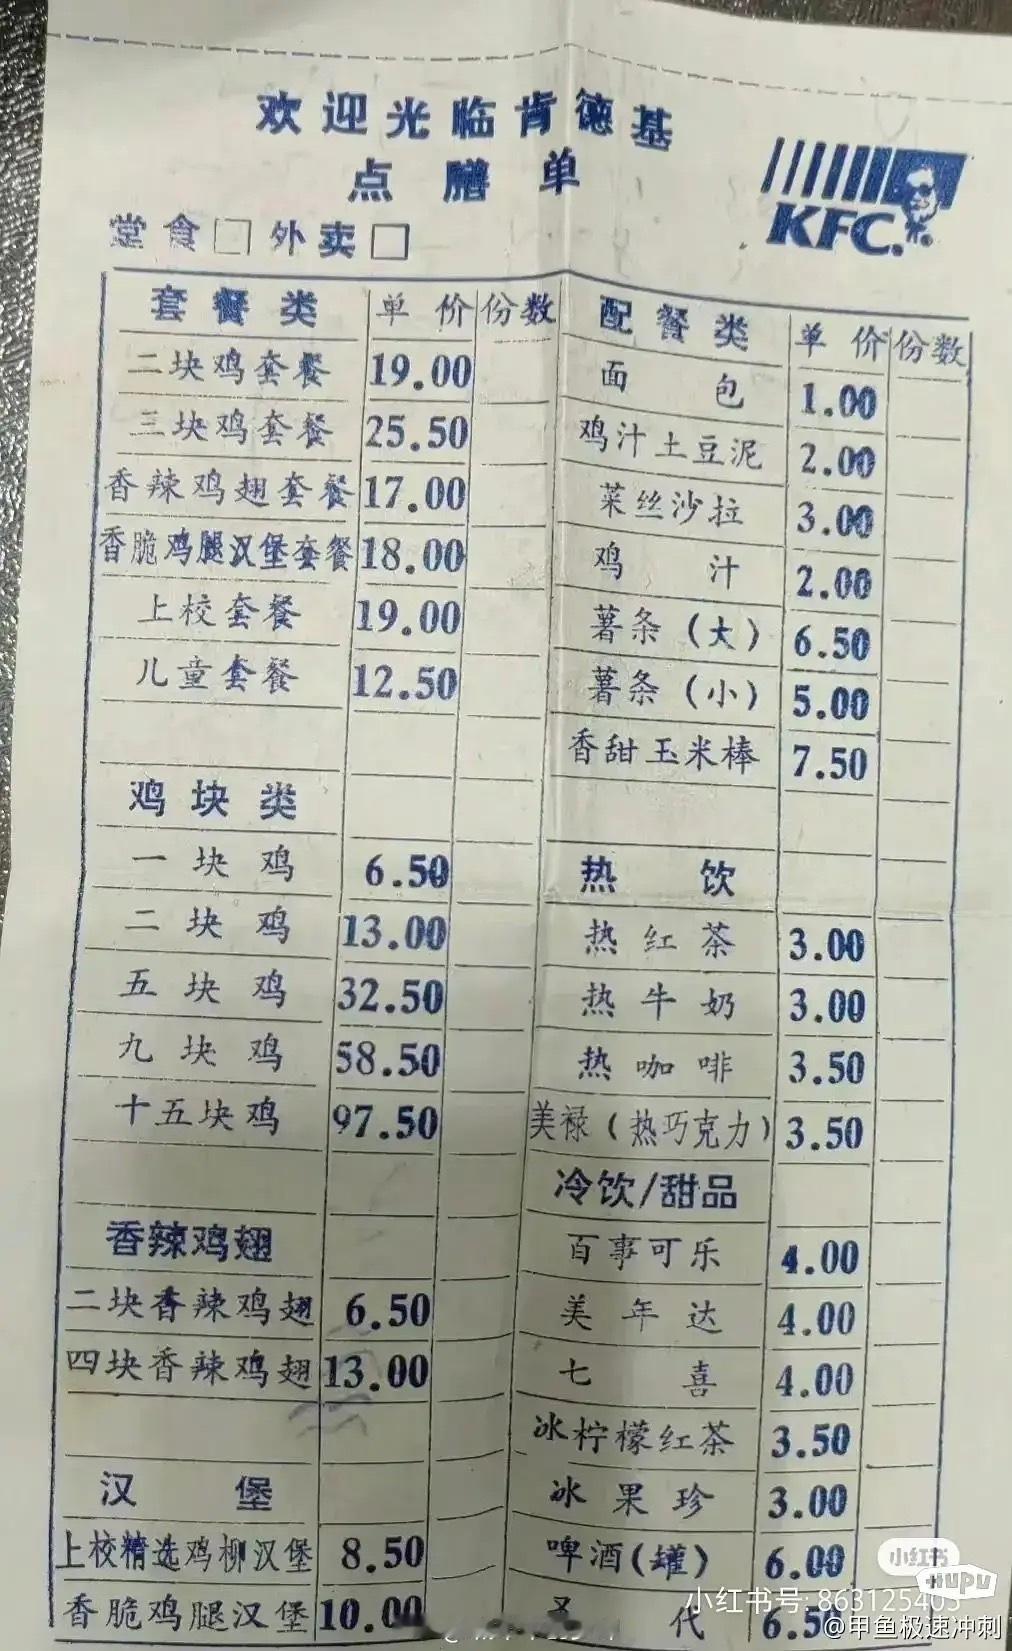 欢迎光临肯德基
点膳单
KFC.
堂食□外卖□
套餐类 单价 份数
二块鸡套餐 19.00
三块鸡套餐 25.50
香辣鸡翅套餐 17.00
香脆鸡腿汉堡套餐 18.00
上校套餐 19.00
儿童套餐 12.50
鸡块类
一块鸡 6.50
二块鸡 13.00
五块鸡 32.50
九块鸡 58.50
十五块鸡 97.50
香辣鸡翅
二块香辣鸡翅 6.50
四块香辣鸡翅 13.00
汉堡
上校精选鸡柳汉堡 8.50
香脆鸡腿汉堡 10.00
配餐类 单价 份数
面包 1.00
鸡汁土豆泥 2.00
菜丝沙拉 3.00
鸡汁 2.00
薯条(大) 6.50
薯条(小) 5.00
香甜玉米棒 7.50
热饮
热红茶 3.00
热牛奶 3.00
热咖啡 3.50
美禄(热巧克力) 3.50
冷饮/甜品
百事可乐 4.00
美年达 4.00
七喜 4.00
冰柠檬红茶 3.50
冰果珍 3.00
啤酒(罐) 6.00
代 6.50
小红书
HUPU
小红书号: 863125403
@甲鱼极速冲刺